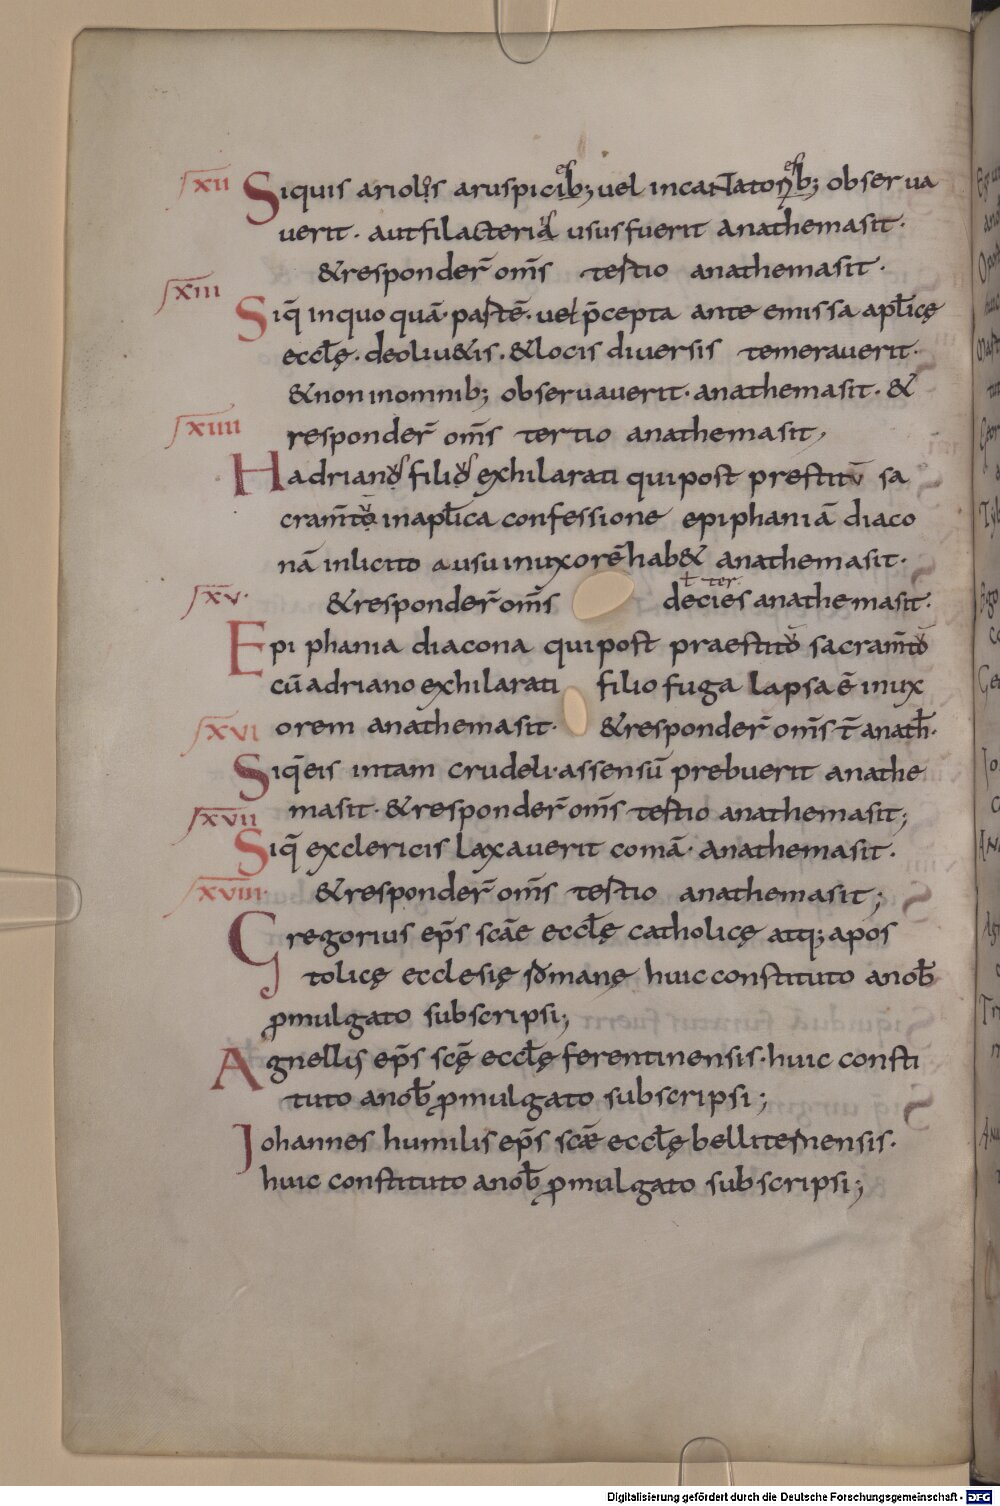 xii Siquis ariolis aruspicib; uel incantatorib; obserua
uerit. aut filacteria usus fuerit anathema sit.
& responder̄ om̄s testio anathema sit.
xiii Siq̄ in quo quā. pastē. uel p̄cepta ante emissa ap̄licę
eccl̄ę. de oliu&is. & locis diuersis temerauerit.
& non in omnib; obseruauerit. anathema sit. &
xiiii responder̄ om̄s tertio anathema sit,
Hadrianus filius exhilarati qui post prestitū sa
cram̄to in ap̄lica confessione epiphaniā diaco
nā inlicito ausu in uxorē hab& anathema sit.
ł ter.
xv. & responder̄ om̄s decies anathema sit.
Epiphania diacona qui post praestito sacram̄to
cū adriano exhilarati filio fuga lapsa ē in ux
xvi orem anathema sit. & responder̄ om̄s t̄ anath̄.
Siq̄ eis in tam crudeli. assensū prebuerit anathe
masit. & responder̄ om̄s testio anathema sit;
xvii Siq̄ ex clericis laxauerit comā. anathema sit.
xviii & responder̄ om̄s testio anathema sit;
Gregorius ep̄s scāe eccl̄ę catholicę atq; apos
tolicę ecclesię romanę huic constituto a nob̄
ꝓmulgato subscripsi;
Agnellis ep̄s scę̄ eccl̄ę ferentinensis. huic consti
tuto a nob̄ ꝓmulgato subscripsi;
Iohannes humilis ep̄s scǣ eccl̄ę belliternensis.
huic constituto a nob̄ ꝓmulgato subscripsi;
Digitalisierung gefördert durch die Deutsche Forschungsgemeinschaft - DFG